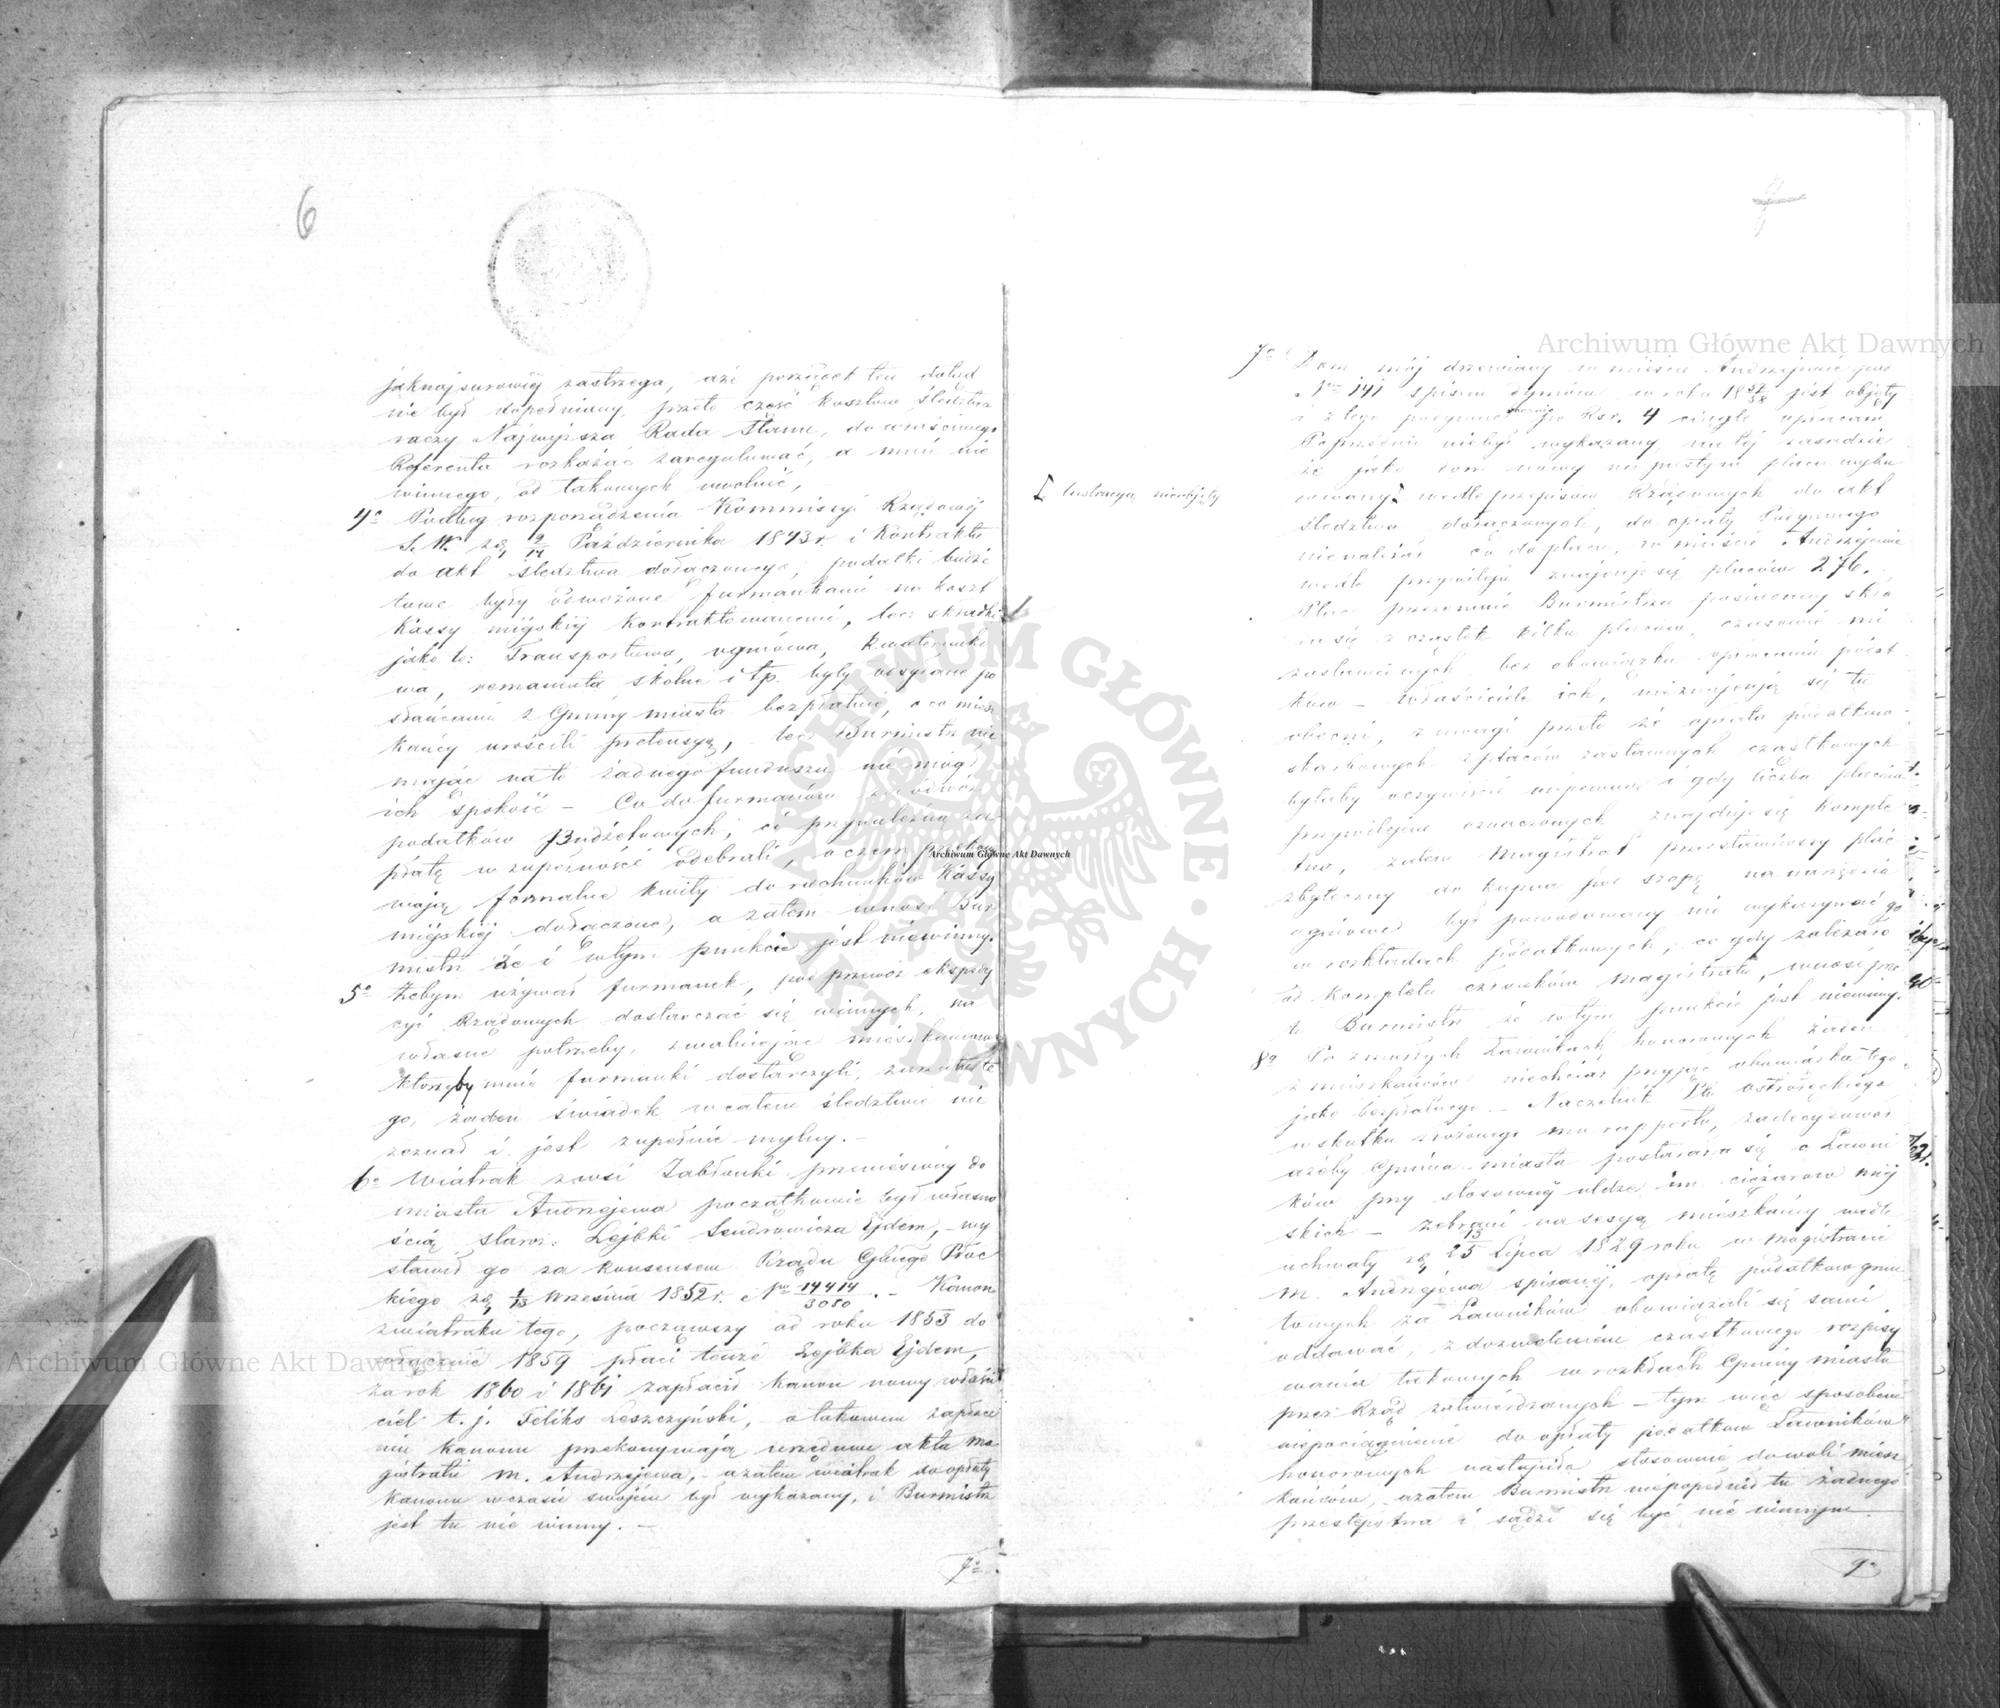 6
jaknajsurowiéj zastrzega, aże porządek ten dotąd
nie był dopełniany, przeto część kosztów śledztwa
raczy Najwyższa Rada Stanu, do właściwego
Referenta rozkazać zaregulować, a mnie nie
winnego, od takowych uwolnić,
4o Podług rozporządzenia Kommissyi Rządowéj
S. W. z dnia 2/14 Października 1843 r. i Kontraktu
do akt śledztwa dołączonego, podatki budże
towe były odwożone furmankami na koszt
Kassy miéjskiéj Kontraktowanemi, lecz składki
jako to: Transportowa, ogniowa, Kwaterunko
wa, remanenta, skolne i t.p. były odsyłane po
słańcami z Gminy miasta bezpłatnie, o co miesz
kańcy urościli pretensyą, – lecz Burmistrz nie
mając na to żadnego funduszu nie mógł
ich spokoić – Co do furmanów za odwóz
podatków Budżetowych, ci przynależną za
płatę w zupełności odebrali, o czem przekony
wają formalne kwity do rachunków Kassy
miéjskiéj dołączone, a zatem wnosi Bur
mistrz że i w tym punkcie jest niewinny.
5o Żebym używał furmanek, pod przewóz ekspedy
cyi Rządowych dostarczać się winnych, na
własne potrzeby, zwalniając mieszkańców
którzyby mnie furmanki dostarczyli, zarzutu te
go, żaden świadek w całem śledztwie nie
zeznał i jest zupełnie mylny. –
6o Wiatrak z wsi Zabłonki przeniesiony do
miasta Andrzejewa początkowie był własno
ścią staroz: Lejbki Sendrowicza Ejdem, – wy
stawił go za konsensem Rządu Gbnego Płoc
kiego z dnia 1/13 Września 1852 r. No 14414/3080. – Kanon
z wiatraku tego, począwszy od roku 1853 do
włącznie 1859 płacił tenże Lejbka Ejdem,
za rok 1860 i 1861 zapłacił kanon nowy właści
ciel t. j. Feliks Leszczyński, – o takowem zapłace
niu kanonu przekonywają urzędowe akta Ma
gistratu m. Andrzejewa, – a zatem wiatrak do opłaty
kanonu w czasie swojém był wykazany, i Burmistrz
jest tu nie winny. –
7o
7
7o Dom mój drewniany w mieście Andrzejewie pod
Nrem 141 spisem dymów w roku 1857/58 jest objęty
i z tego podymne rocznie po Ksr. 4 ciągle opłacam
Poprzednio niebył wykazany na téj zasadzie
że jako dom nowy na pustym placu wybu
dowany wedle przepisów Rządowych do akt
śledztwa dołączonych, do opłaty Podymnego
nienależał co do placu, w mieście Andrzejewie
wedle przywileju znajduje się placów 276.
Plac przezemnie Burmistrza posiadany skła
da się z cząstek kilku placów, czasowie mi
zastawionych bez obowiązku opłacania podat
ków – właściciele ich, nieznajdują się tu
obecni, z uwagi przeto że opłata podatków
skarbowych z placów zastawnych cząstkowych
byłaby oczywiście niepewną i gdy liczba placów
przywilejem oznaczonych znajduje się komple
tna, zatem Magistrat przedstawiwszy plac
zbyteczny do kupna pod szopę na narzędzia
ogniowe był powodowany nie wykazywać go
w rozkładach podatkowych, co gdy zależało
od kompletu członków Magistratu, wnosi prze
to Burmistrz że w tym punkcie jest niewinny.
[ lustracyą nieobjęty
8o Po zmarłych Ławnikach honorowych żaden
z mieszkańców niechciał przyjąć obowiązku tego
jako bezpłatnego. – Naczelnik Ptu Ostrołęckiego
w skutku złożonego mu rapportu, zadecydował
ażeby Gmina miasta postarała się o Ławni
ków przy stosownéj uldze im ciężarów miéj
skich – Zebrani na sesyą mieszkańcy wedle
uchwały z dnia 13/25 Lipca 1829 roku w Magistracie
m. Andrzejewa spisanéj, opłatę podatków grun
towych za Ławników obowiązali się sami
oddawać, z dozwoleniem cząstkowego rozpisy
wania takowych w rozkładach Gminy miasta
przez Rząd zatwierdzanych – tym więc sposobem
niepociągnienie do opłaty podatków Ławników
honorowych nastąpiło stosownie do woli miesz
kańców, a zatem Burmistrz niepopełnił tu żadnego
przestępstwa i sądzi się być nie winnym –
9o